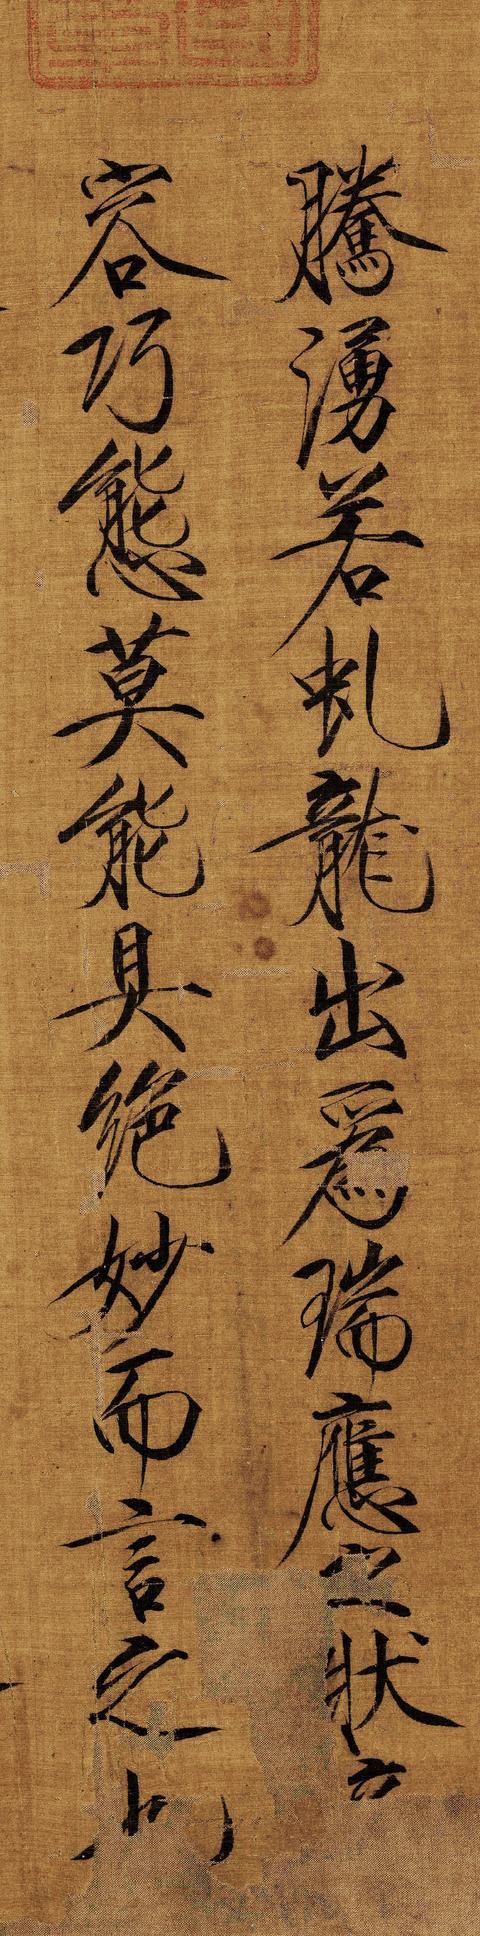 騰湧若虬龍出爲瑞應之狀
容巧態莫能具絕妙而言之